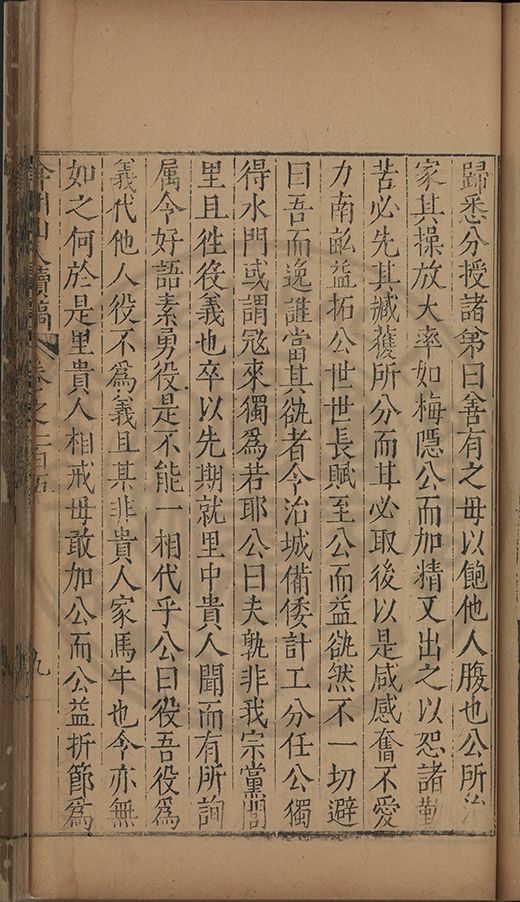 歸悉分授諸弟曰善有之毋以飽他人腹也公所治
家其操放大率如梅隱公而加精又出之以恕諸勤
苦必先其臧獲所分而甘必取後以是咸感奮不愛
力南畝益拓公世世長賦至公而益欿然不一切避
曰吾而逸誰當其欿者令治城備倭計工分任公獨
得水門或謂寇來獨爲若耶公曰夫孰非我宗黨閭
里且徃役義也卒以先期就里中貴人聞而有所詢
属令好語素勇役是不能一相代乎公曰役吾役爲
義代他人役不爲義且某非貴人家馬牛也今亦無
如之何於是里貴人相戒毋敢加公而公益折節爲
弇州山人續稿 卷之一百五 九